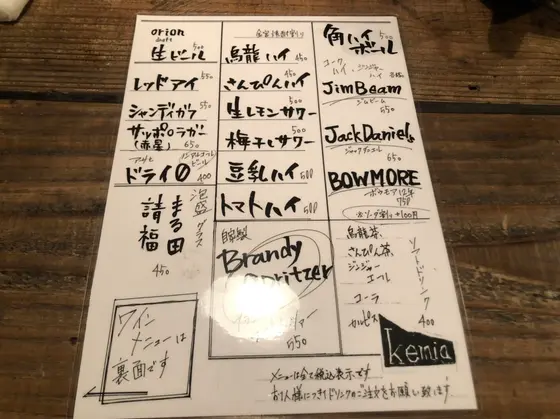 orion
生ビール 500
レッドアイ 550
シャンディガフ 550
サッポロラガー
(赤星) 650
アサヒ
ノンアルコールビール
ドライ0 400
泡盛 グラス
まる田
請福
450
ワイン
メニューは
裏面です
烏龍ハイ 450
さんぴんハイ 450
生レモンサワー 500
梅干しサワー 500
豆乳ハイ 500
トマトハイ 500
自製
Brandy
Spritzer
550
角ハイボール 500
コークハイ、ジンジャーハイ
JimBeam
ジムビーム
550
JackDaniels
ジャックダニエル
650
BOWMORE
ボウモア12年
750
※ソーダ割り+100円
ソフトドリンク
烏龍茶
さんぴん茶
ジンジャー
エール
コーラ
カルピス
400
kemia
メニューは全て税込表示です
お1人様につき1ドリンクのご注文をお願い致します。